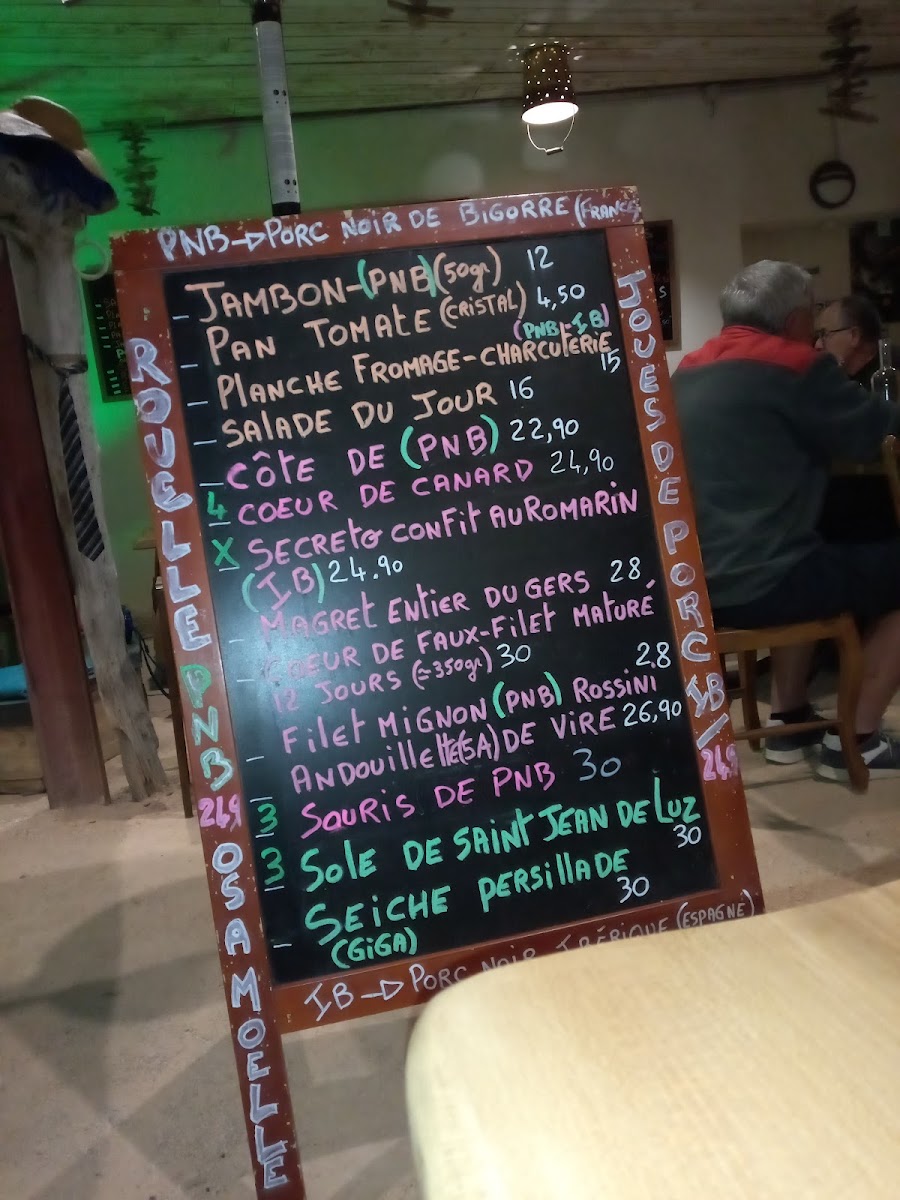 PNB → PORC NOIR DE BIGORRE (FRANCE)
- JAMBON - (PNB) (50gr) 12
- PAN TOMATE (CRISTAL) 4,50
- PLANCHE FROMAGE - CHARCUTERIE (PNB - IB) 15
- SALADE DU JOUR 16
- CÔTE DE (PNB) 22,90
4 COEUR DE CANARD 24,90
X SECRETO CONFIT AU ROMARIN
(IB) 24.90
- MAGRET ENTIER DU GERS 28
- COEUR DE FAUX-FILET MATURÉ
12 JOURS (≃350gr) 30
FILET MIGNON (PNB) ROSSINI 28
- ANDOUILLETTE (5A) DE VIRE 26,90
3 SOURIS DE PNB 30
3 SOLE DE SAINT JEAN DE LUZ 30
- SEICHE PERSILLADE 30
(GIGA)
IB → PORC NOIR IBÉRIQUE (ESPAGNE)
ROUELLE PNB 249 OSAMOELLE
JOUES DE PORC IB/ 249